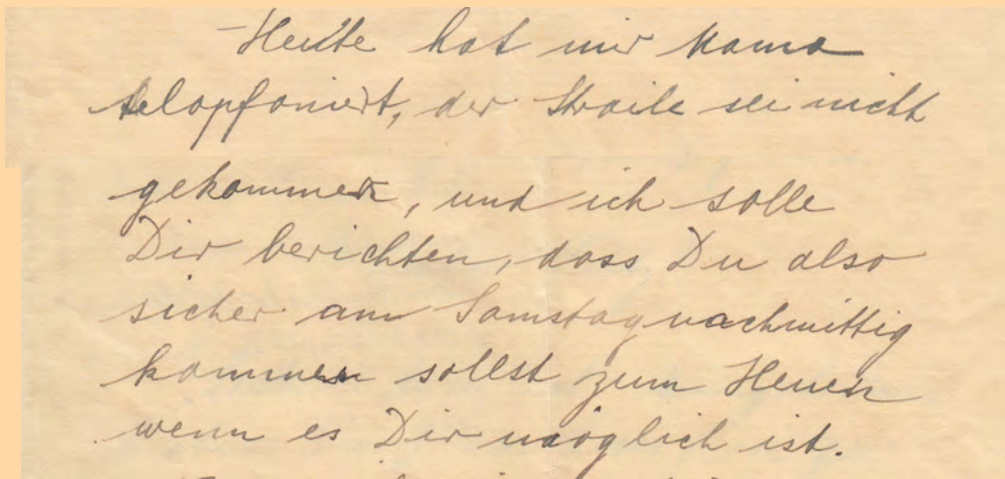 Heute hat mir Mama
telopfoniert, der Straile sei nicht
gekommen, und ich solle
Dir berichten, dass Du also
sicher am Samstagnachmittig
kommen sollst zum Heuen
wenn es Dir möglich ist.